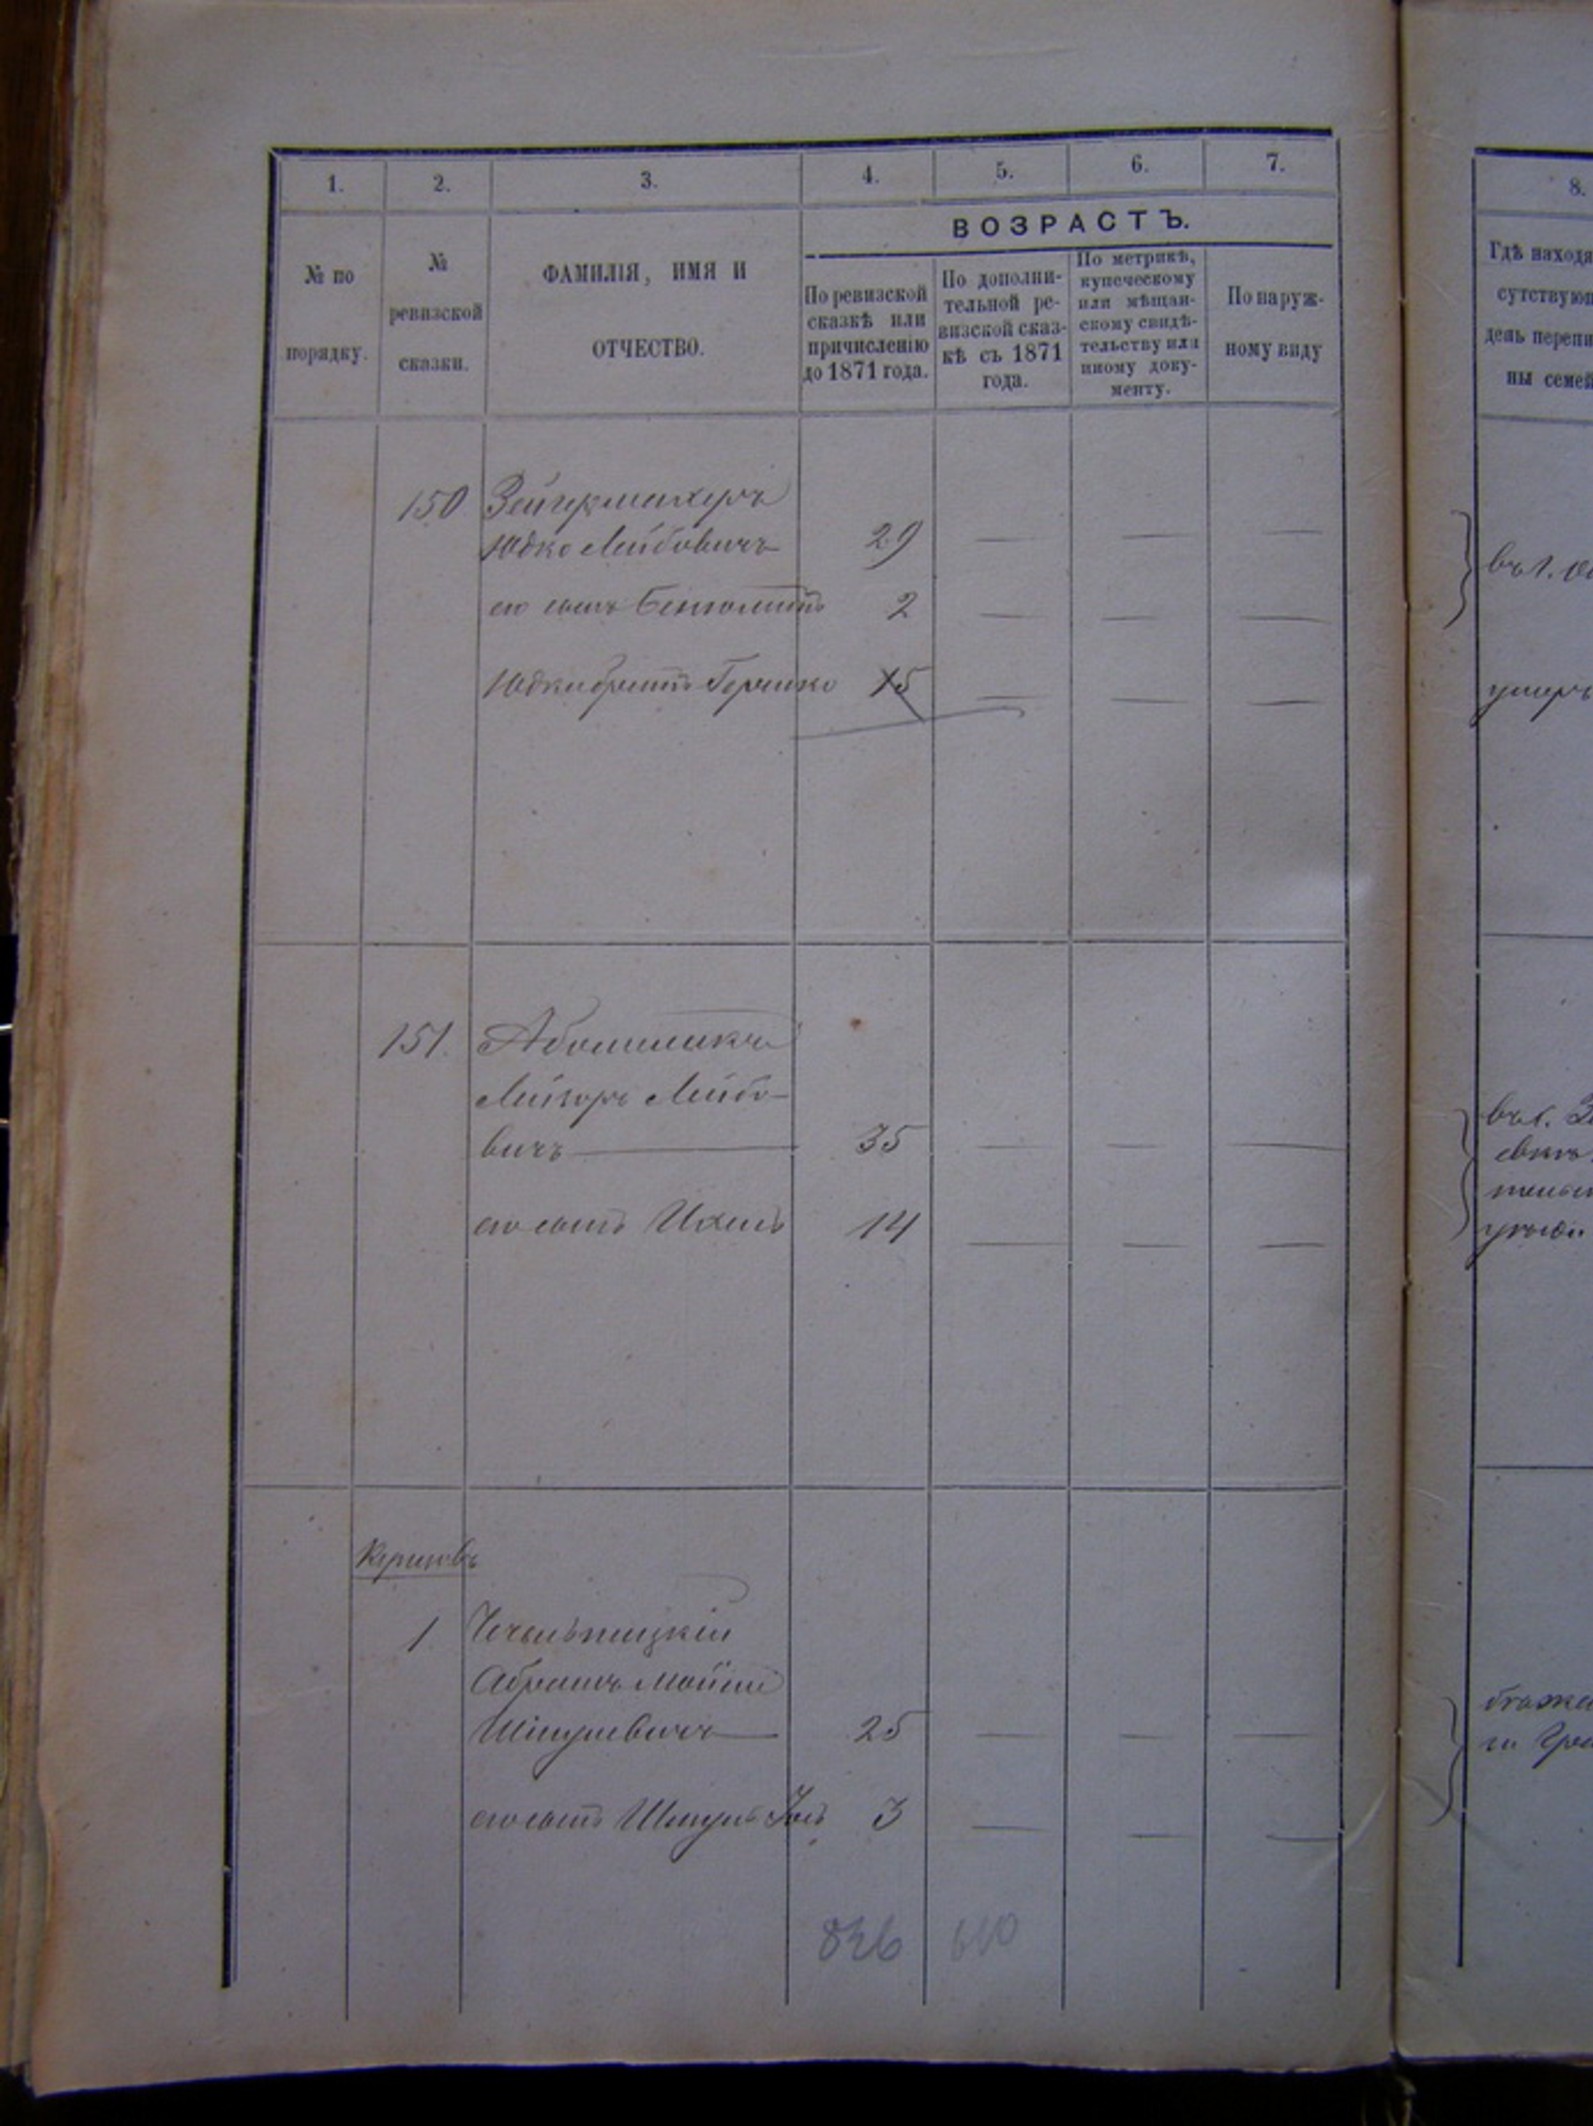 1. 2. 3. 4. 5. 6. 7.
8.
ВОЗРАСТЪ.
№ по
порядку.
№
ревизской
сказки.
ФАМИЛІЯ, ИМЯ И
ОТЧЕСТВО.
По ревизской
сказкѣ или
причисленію
до 1871 года.
По дополни-
тельной ре-
визской сказ-
кѣ съ 1871
года.
По метрикѣ,
купеческому
или мѣщан-
скому свидѣ-
тельству или
иному доку-
менту.
По наруж-
ному виду
Гдѣ находя
сутствующ
день перепи
ны семей
150 Зейгермахеръ
Юдко Лейбовичъ 29 — — —
его сынъ 2 — — —
Юдки братъ Гершко 15 — — —
въ г.
умеръ
151.
Лейзеръ Лейбо-
вичъ — 35 — — —
его сынъ Ихиль 14 — — —
1 Чечельницкій
Абрамъ
Шмулевичъ — 25 — — —
его сынъ Шмуль 3 — — —
836 610